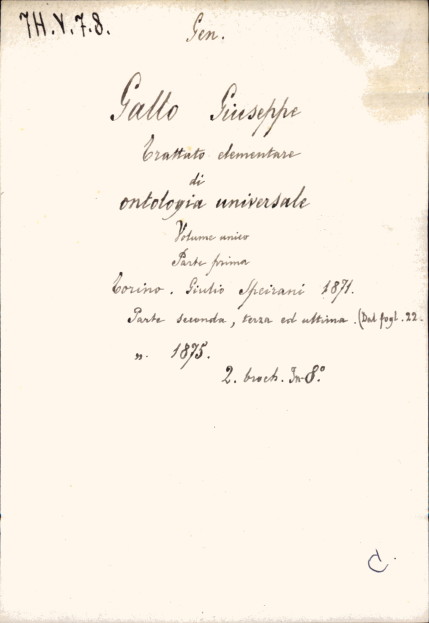 7H.V.7.8.
Gen.
Gallo Giuseppe
Trattato elementare
di
ontologia universale
Volume unico
Parte prima
Torino. Giulio Speirani 1871.
Parte seconda, terza ed ultima. (Dal fogl. 22.
n. 1875.
2. broch. In-8.°
C.